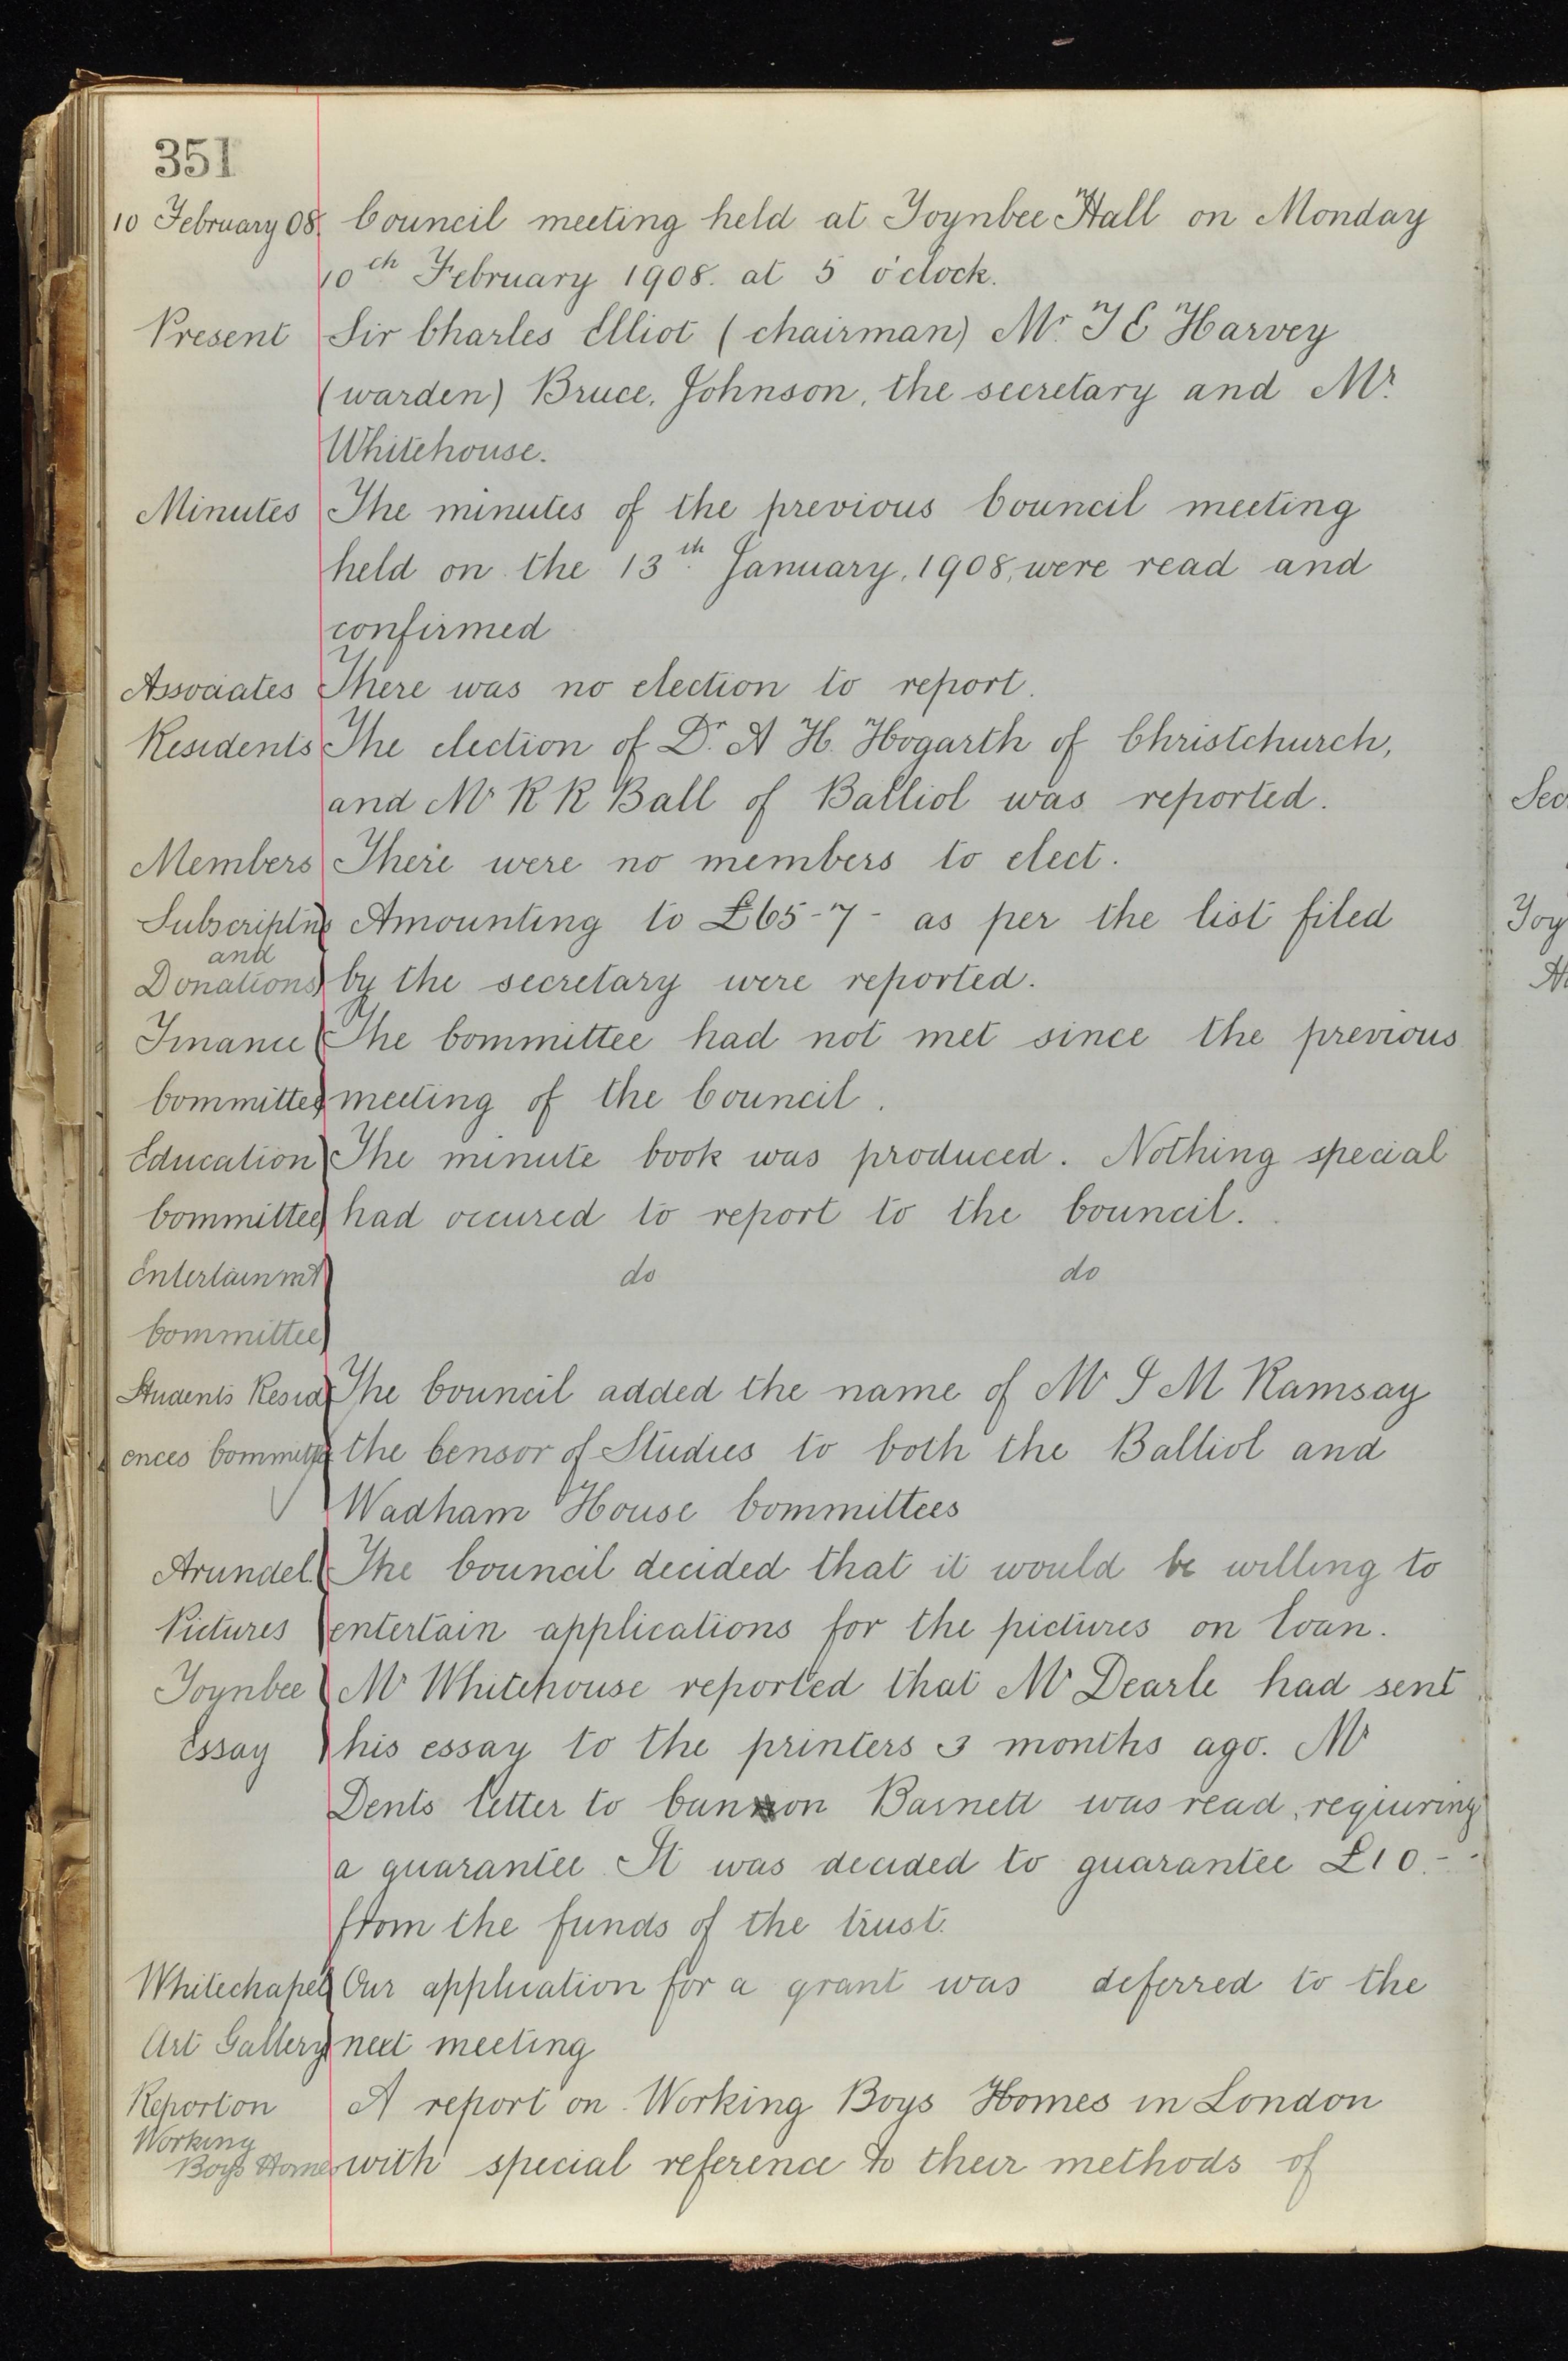 351
10 February 08. Council meeting held at Toynbee Hall on Monday
10th February 1908. at 5 o'clock.
Present Sir Charles Elliot (chairman) Mr. T E Harvey
(warden) Bruce, Johnson, the secretary and Mr.
Whitehouse.
Minutes The minutes of the previous Council meeting
held on the 13th January, 1908, were read and
confirmed
Associates There was no election to report.
Residents The election of Dr. A H. Hogarth of Christchurch,
and Mr R R Ball of Balliol was reported.
Members There were no members to elect.
Subscriptns Amounting to £65-7- as per the list filed
and
Donations by the secretary were reported.
Finance The Committee had not met since the previous
Committee meeting of the Council.
Education The minute book was produced. Nothing special
Committee had occured to report to the Council.
Entertainmt do do
Committee
Students Resid The Council added the name of Mr I M Ramsay
ences Committee the Censor of Studies to both the Balliol and
Wadham House Committees
Arundel The Council decided that it would be willing to
Pictures entertain applications for the pictures on loan.
Toynbee Mr Whitehouse reported that Mr Dearle had sent
Essay his essay to the printers 3 months ago. Mr
Dents letter to Cannon Barnett was read, requiring
a guarantee It was decided to guarantee £10.-
from the funds of the trust.
Whitechapel Our application for a grant was deferred to the
Art Gallery next meeting
Report on A report on Working Boys Homes in London
Working
Boys Homes with special reference to their methods of
Sec
Toy